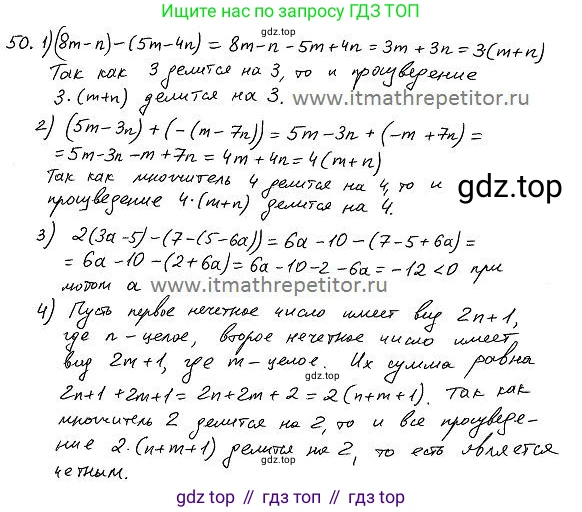 Ищите нас по запросу ГДЗ ТОП
gdz.top
50. 1) (8m-n)-(5m-4n) = 8m-n-5m+4n = 3m+3n = 3(m+n)
Так как 3 делится на 3, то и произведение
3·(m+n) делится на 3. www.itmathrepetitor.ru
2) (5m-3n)+(-(m-7n)) = 5m-3n+(-m+7n) =
= 5m-3n-m+7n = 4m+4n = 4(m+n)
Так как множитель 4 делится на 4, то и
произведение 4·(m+n) делится на 4.
gdz.top
3) 2(3a-5)-(7-(5-6a)) = 6a-10-(7-5+6a) =
= 6a-10-(2+6a) = 6a-10-2-6a = -12<0 при
любом a www.itmathrepetitor.ru
4) Пусть первое нечетное число имеет вид 2n+1,
где n-целое, второе нечетное число имеет
вид 2m+1, где m-целое. Их сумма равна
gdz.top
2n+1+2m+1 = 2n+2m+2 = 2(n+m+1). Так как
множитель 2 делится на 2, то и все произведе-
ние 2·(n+m+1) делится на 2, то есть является
gdz.top
четным.
gdz.top // гдз топ // gdz.top // гдз топ